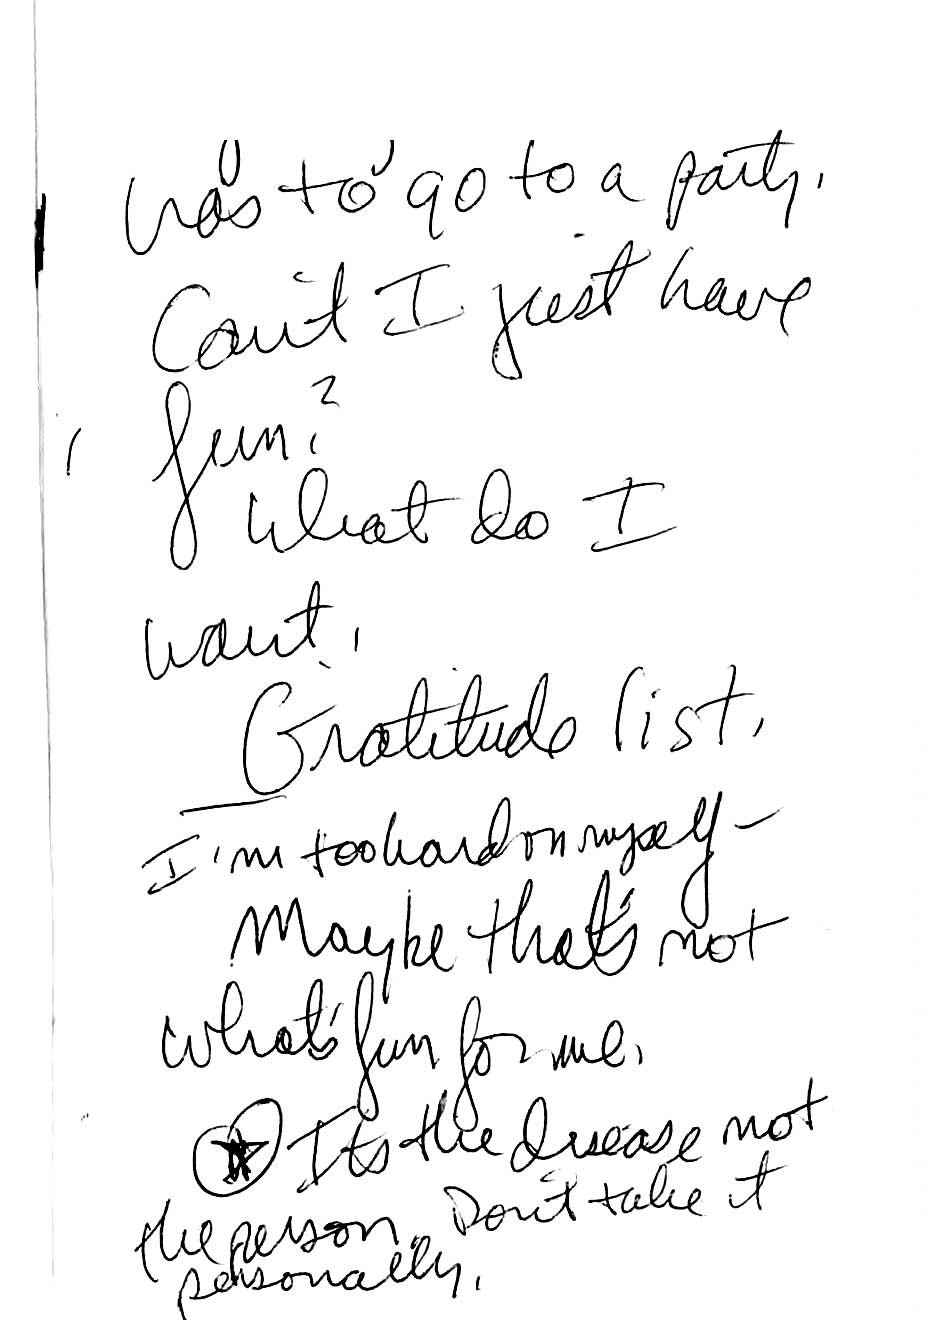 has to go to a party.
Can't I just have
fun?
What do I
want.
Gratitude list.
I'm too hard on myself -
Maybe that's not
what's fun for me.
It's the disease not
the person. Don't take it
personally.